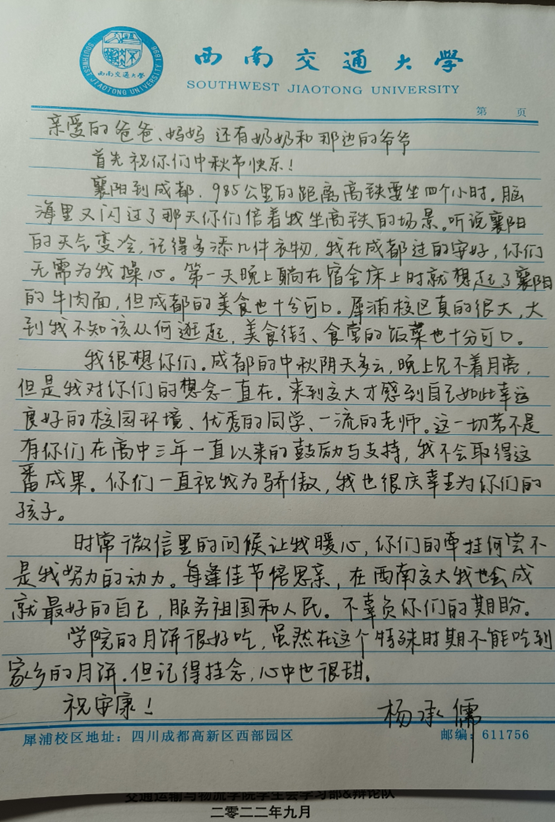 西南交通大学
SOUTHWEST JIAOTONG UNIVERSITY
第 页
亲爱的爸爸、妈妈 还有奶奶和那边的爷爷
首先祝你们中秋节快乐!
襄阳到成都,985公里的距离高铁要坐四个小时。脑
海里又闪过了那天你们陪着我坐高铁的场景。听说襄阳
的天气变冷,记得多添几件衣物,我在成都过的安好,你们
无需为我操心。第一天晚上躺在宿舍床上时就想起了襄阳
的牛肉面,但成都的美食也十分可口。犀浦校区真的很大,大
到我不知该从何逛起,美食街、食堂的饭菜也十分可口。
我很想你们。成都的中秋阴天多云,晚上见不着月亮,
但是我对你们的想念一直在。来到交大才感到自己如此幸运
良好的校园环境、优秀的同学、一流的老师。这一切若不是
有你们在高中三年一直以来的鼓励与支持,我不会取得这
番成果。你们一直视我为骄傲,我也很庆幸生为你们的
孩子。
时常微信里的问候让我暖心,你们的牵挂何尝不
是我努力的动力。每逢佳节倍思亲,在西南交大我也会成
就最好的自己,服务祖国和人民。不辜负你们的期盼。
学院的月饼很好吃,虽然在这个特殊时期不能吃到
家乡的月饼,但记得挂念,心中也很甜。
祝安康!
杨承儒
犀浦校区地址:四川成都高新区西部园区 邮编:611756
交通运输与物流学院学生会学习部&辩论队
二零二二年九月